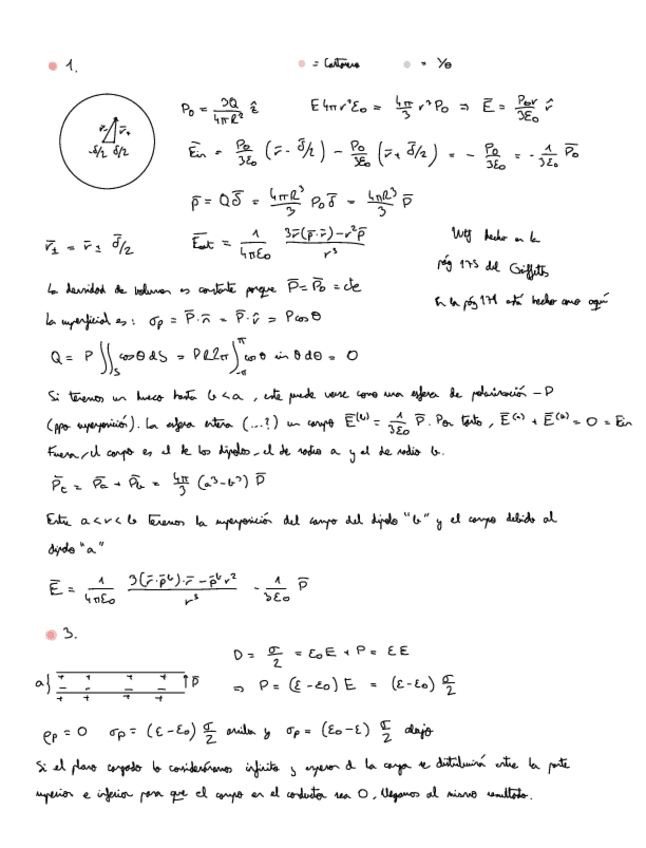 1.
= Cartonero
= Yo
P₀ = 3Q/4πR² ẑ   E4πr²ε₀ = 4π/3 r³P₀ ⇒ E̅ = P₀r/3ε₀ r̂
r̅₋ r̅₊
-δ̅/2 δ̅/2
E̅in = P₀/3ε₀ (r̅ - δ̅/2) - P₀/3ε₀ (r̅ + δ̅/2) = - P₀/3ε₀ = - 1/3ε₀ P̅₀
p̅ = Qδ̅ = 4πR³/3 P₀δ̅ = 4πR³/3 P̅
r̅± = r̅ ± δ̅/2   E̅ext = 1/4πε₀ 3r̅(p̅·r̅)-r²p̅/r⁵
hecho en la
pág 175 del Griffiths
En la pág 171 está hecho como aquí
La densidad de volumen es constante porque P̅ = P̅₀ = cte
La superficial es: σp = P̅·n̅ = P̅·r̂ = P cosθ
Q = P ∬s cosθ dS = PR2π ∫ cosθ sinθ dθ = 0
Si tenemos un hueco hasta b < a, este puede verse como una esfera de polarización -P
(por superposición). La esfera entera (...?) un campo E̅⁽ᵇ⁾ = 1/3ε₀ P̅. Por tanto, E̅⁽ᵃ⁾ + E̅⁽ᵇ⁾ = 0 = Ein
Fuera, el campo es el de los dipolos, el de radio a y el de radio b.
P̅t = P̅a + P̅b = 4π/3 (a³-b³) P̅
Entre a < r < b tenemos la superposición del campo del dipolo "b" y el campo debido al
dipolo "a"
E̅ = 1/4πε₀ 3(r̅·p̅ᵇ)·r̅ - p̅ᵇr²/r⁵ - 1/3ε₀ P̅
3.
D = σ/2 = ε₀E + P = εE
a{ + + + + ↑P̅
- - - -
+ + + +
⇒ P = (ε-ε₀) E = (ε-ε₀) σ/2
ρp = 0   σp = (ε-ε₀) σ/2 arriba y σp = (ε₀-ε) σ/2 abajo
Si el plano cargado lo consideráramos infinito y espesor d la carga se distribuirá entre la parte
superior e inferior para que el campo en el conductor sea 0, llegamos al mismo resultado.